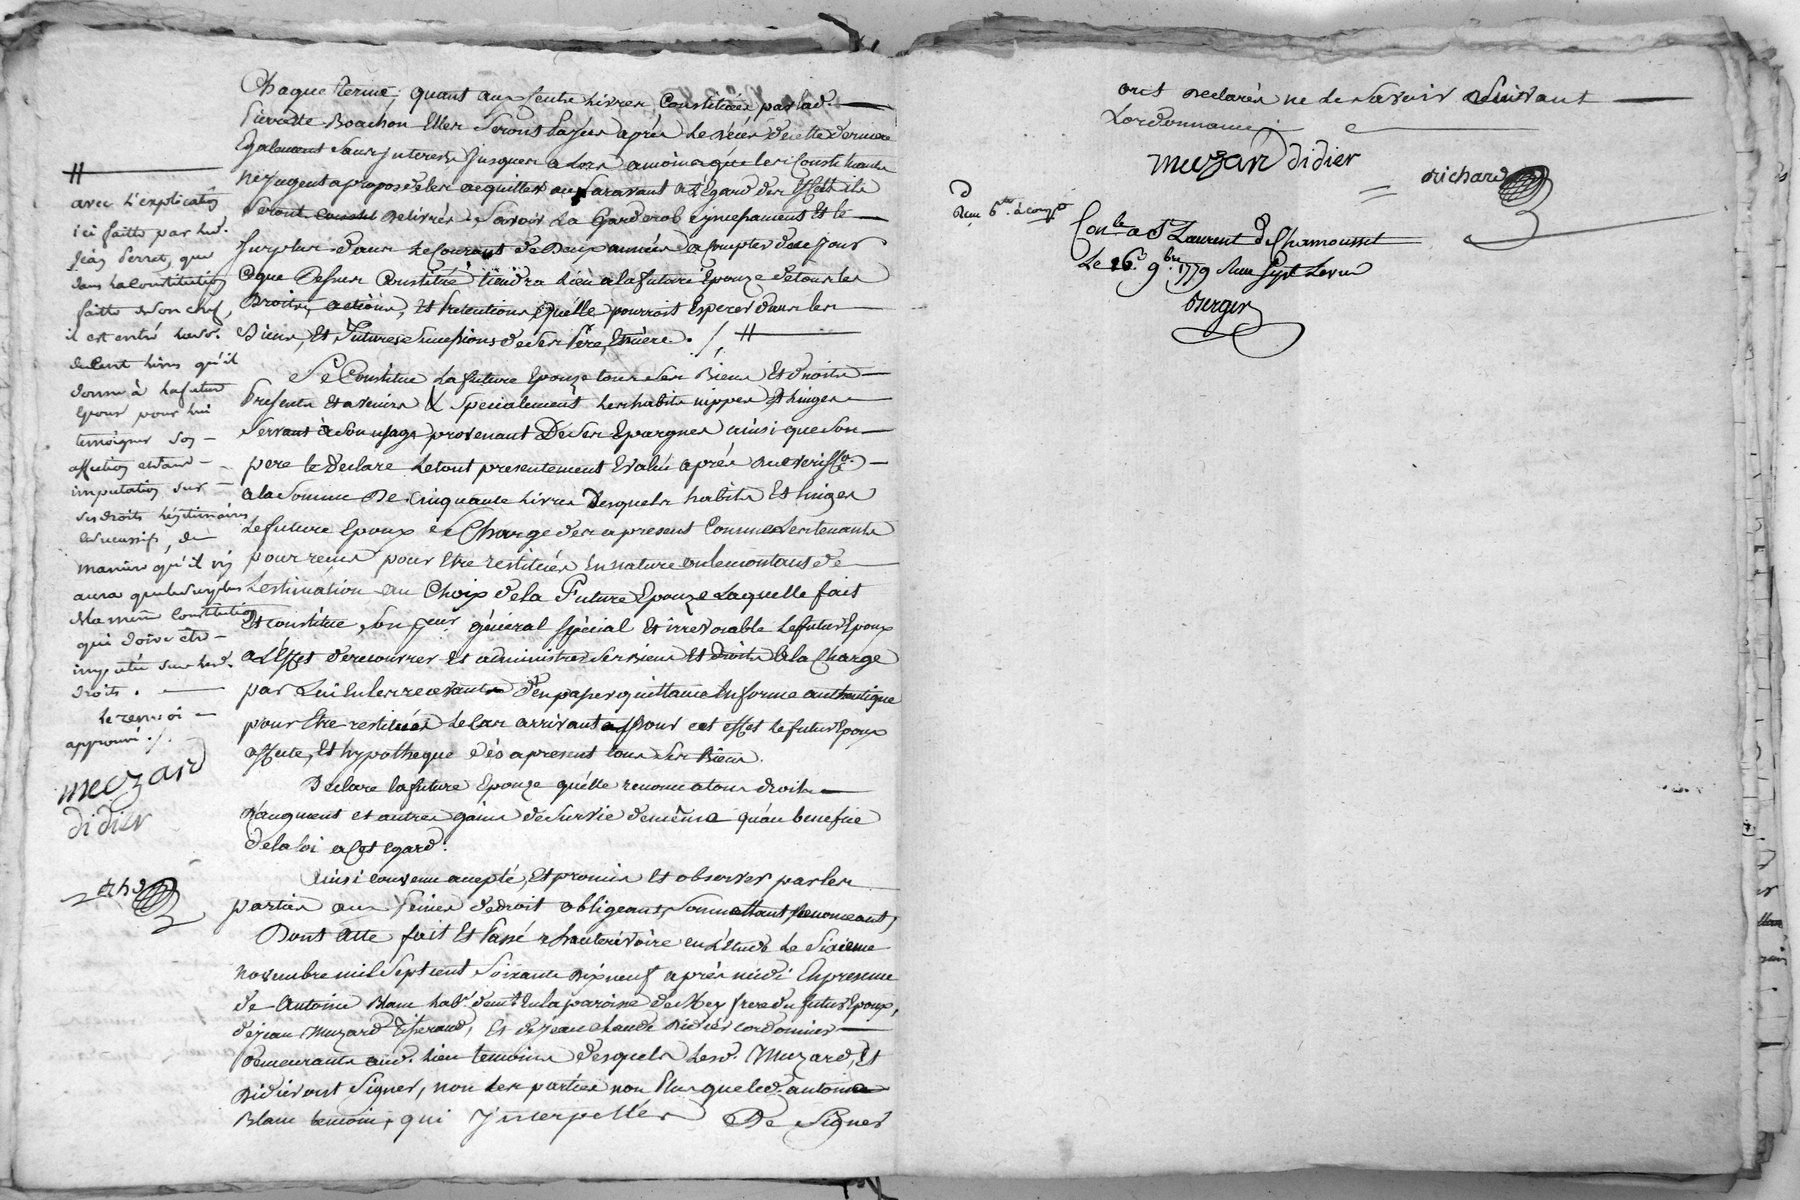 Chaque terme; quant aux cents Livres Constituées par lad.
Pierrette Boachon Elles Seront payées après Le décès de cette derniere
Egalement Sans Interests Jusques alors amoins que les Constituants
ne Jugent apropos de les acquitter auparavant a L'Egard des Effets ils
Seront delivrés, Savoir La Garderob incessament Et le
Surplus dans Le Courant de deux années a Compter de ce jour
Ce que dessus Constitué tiendra Lieu a la future Epouze de tous les
Droits, actions, Et pretentions qu'elle pourroit Esperer dans les
Biens, Et Futures Successions de Ses Père, Et mère ./. #
Se Constitue La future Epouze tous Ses Biens Et droits
Presents Et avenirs & Specialement Les habits nippes Et Linges
Servant à Son usage provenant De Ses Epargnes ainsi que Son
pere le declare Le tout presentement Evalué après
a la Somme De Cinquante Livres Desquels habits Et Linges
Le future Epoux Se Charge des a present Comme Les tenants
pour reçus pour Etre restitués En nature ou le montant de
L'estimation au Choix de la Future Epouze Laquelle fait
Et Constitue Son general Special Et irrevocable Le futur Epoux
a L'Effet de recouvrer Et administrer Ses Biens Et droits a la Charge
par Lui En les recevant d'en passer quittance En forme authentique
pour Etre restitués Le Cas arrivant, pour cet effet le futur Epoux
affecte, Et hypotheque dès apresent tous Ses Biens.
Declare la future Epouze qu'elle renonce a tous droits
d'augment et autres gains de Survie de même qu'au benefice
de la loi a cet egard.
Ainsi convenu accepté, Et promis Et observer par les
parties aux peines de droit obligeants, Soumettant, Renonceant,
Dont Acte fait Et Passé a hauterivoire en L'etude Le Sixieme
novembre mil Sept cent Soixante Dix neuf après midi En presence
de Antoine Blanc hab. demt. En la paroisse de Meys frere du futur Epoux,
de jean Muzard Tisserand, Et de Jean claude Didier cordonnier
demeurants aud. Lieu temoins desquels Lesd. Muzard, Et
Didier ont Signer, non Les parties non Plus que led. antoine
Blanc temoin, qui Interpellés De Signer
#
avec L'explication
ici faitte par led.
Jean Perret, que
dans la Constitution
faitte de Son chef,
il est entré
de Cent livres qu'il
donne à la future
Epouse pour lui
temoigner Son
affection et Sans
imputation sur
Ses droits Légitimaires
et Successifs, de
maniere qu'il n'y
aura que le Surplus
de la même Constitution
qui doive être
imputée Sur lesd.
droits.
Le renvoi
approuvé ./.
muzard
didier
ont declarés ne Le Savoir Suivant
L'ordonnance
muzard didier
richard
Con.le a St Laurent de Chamousset
Le 16. 9bre. 1779 Reçu Sept Livres
Berger